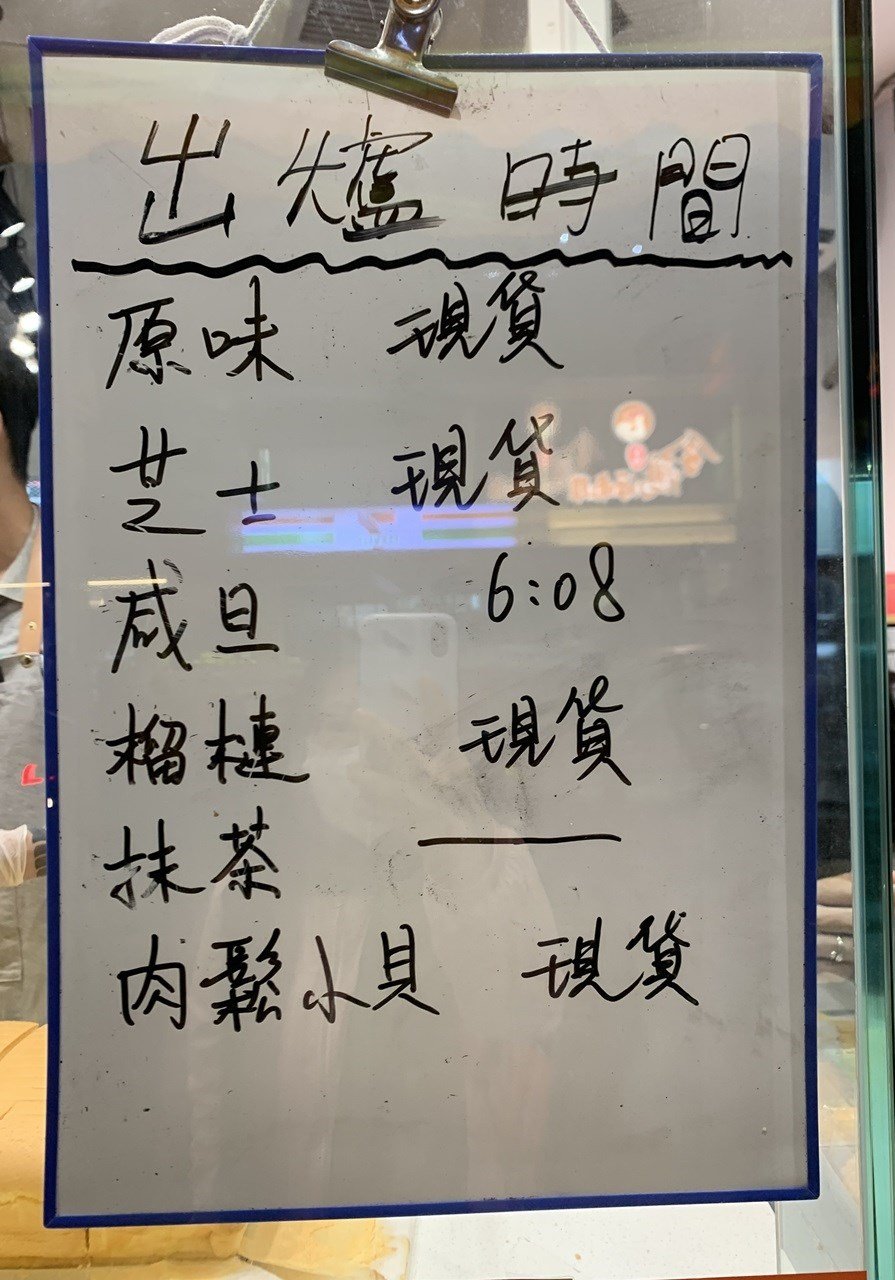 出爐時間
原味 現貨
芝士 現貨
咸旦 6:08
榴槤 現貨
抹茶 ——
肉鬆小貝 現貨